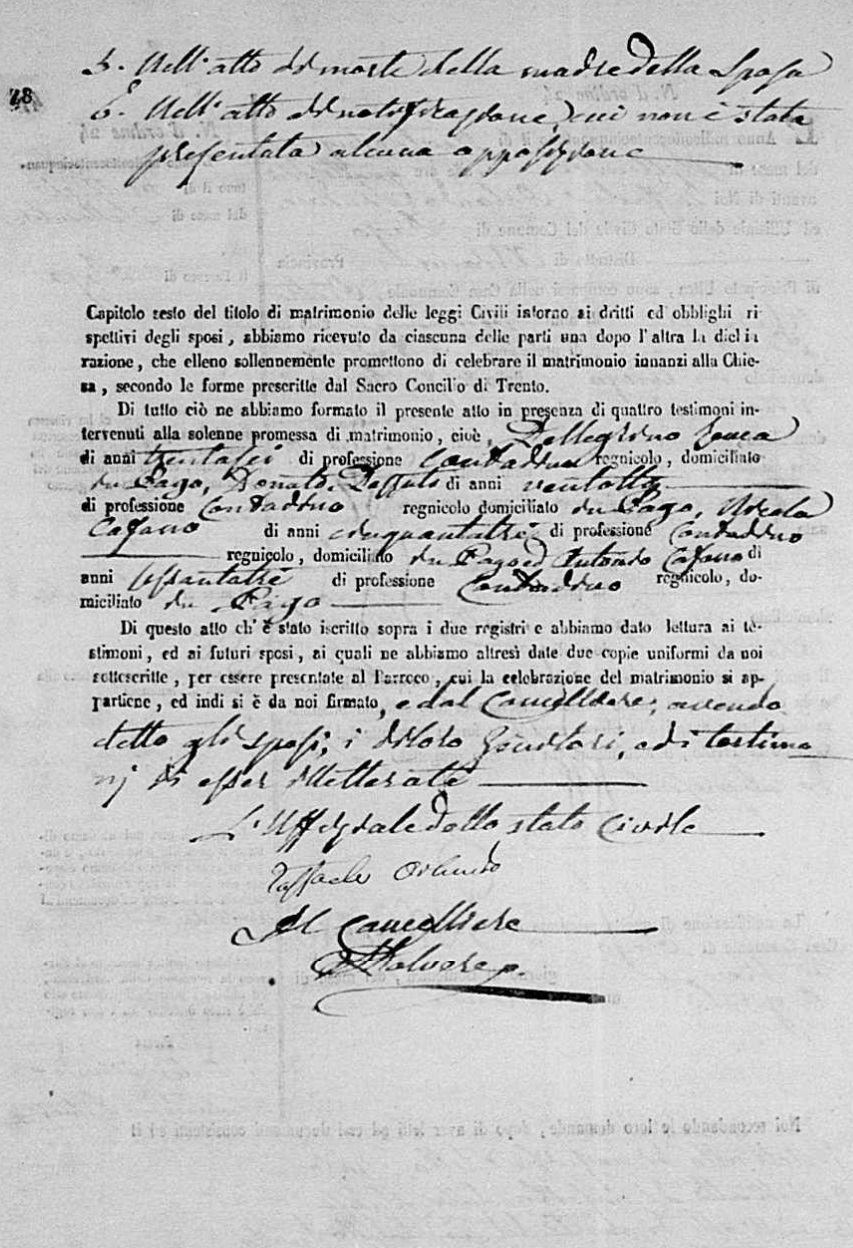 28
5. Nell'atto di morte della madre della Sposa
6. Nell'atto di notificazione, cui non è stata
presentata alcuna opposizione
Capitolo sesto del titolo di matrimonio delle leggi Civili intorno ai dritti ed obblighi ri
spettivi degli sposi, abbiamo ricevuto da ciascuna delle parti una dopo l'altra la dichia
razione, che elleno sollennemente promettono di celebrare il matrimonio innanzi alla Chie-
sa, secondo le forme prescritte dal Sacro Concilio di Trento.
Di tutto ciò ne abbiamo formato il presente atto in presenza di quattro testimoni in-
tervenuti alla solenne promessa di matrimonio, cioè, Pellegrino
di anni trentasei di professione Contadino regnicolo, domiciliato
in Pago, Donato di anni ventotto
di professione Contadino regnicolo domiciliato in Pago, Nicola
Cafano di anni cinquantatrè di professione Contadino
regnicolo, domiciliato in Pago ed Antonio Cafano di
anni sessantatrè di professione Contadino regnicolo, do-
miciliato in Pago
Di questo atto ch'è stato iscritto sopra i due registri e abbiamo dato lettura ai te-
stimoni, ed ai futuri sposi, ai quali ne abbiamo altresì date due copie uniformi da noi
sottoscritte, per essere presentate al Parroco, cui la celebrazione del matrimonio si ap-
partiene, ed indi si è da noi firmato, e dal Cancelliere, avendo
detto gli sposi, i di loro Genitori, ed i testimo
nj di esser illetterati
L'Uffiziale dello stato Civile
Raffaele Orlando
Il Cancelliere